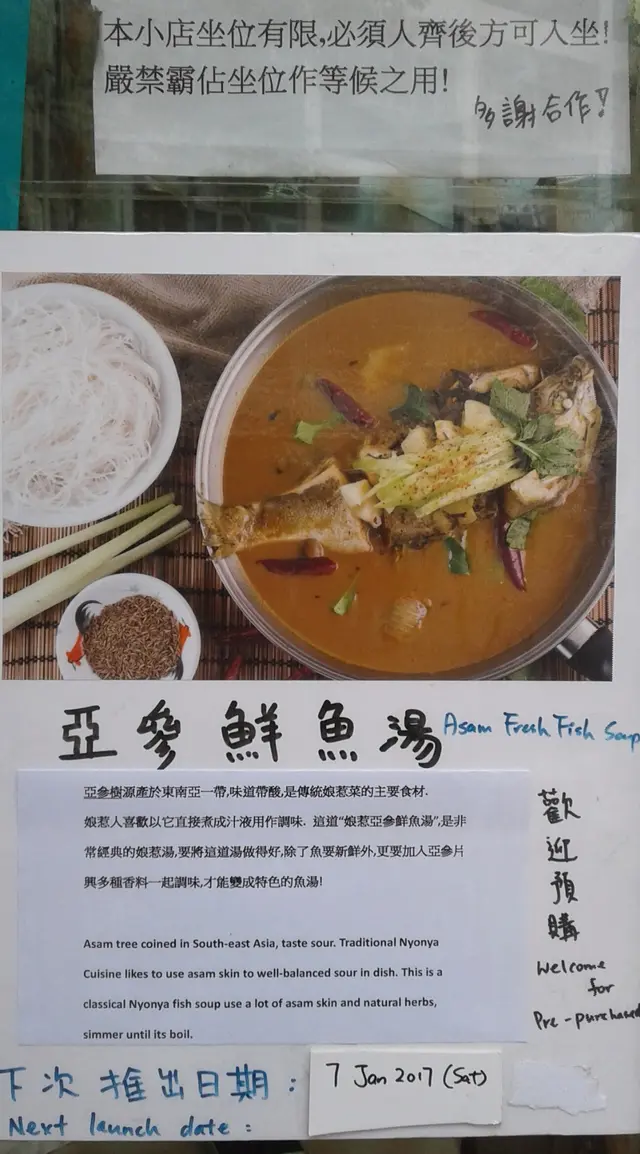 本小店坐位有限,必須人齊後方可入坐!
嚴禁霸佔坐位作等候之用!
多謝合作!
亞參鮮魚湯
Asam Fresh Fish Soup
亞參樹源產於東南亞一帶,味道帶酸,是傳統娘惹菜的主要食材.
娘惹人喜歡以它直接煮成汁液用作調味. 這道“娘惹亞參鮮魚湯”,是非
常經典的娘惹湯,要將這道湯做得好,除了魚要新鮮外,更要加入亞參片
興多種香料一起調味,才能變成特色的魚湯!
Asam tree coined in South-east Asia, taste sour. Traditional Nyonya
Cuisine likes to use asam skin to well-balanced sour in dish. This is a
classical Nyonya fish soup use a lot of asam skin and natural herbs,
simmer until its boil.
歡迎預購
Welcome
for
Pre-purchased
下次推出日期:
Next launch date:
7 Jan 2017 (Sat)